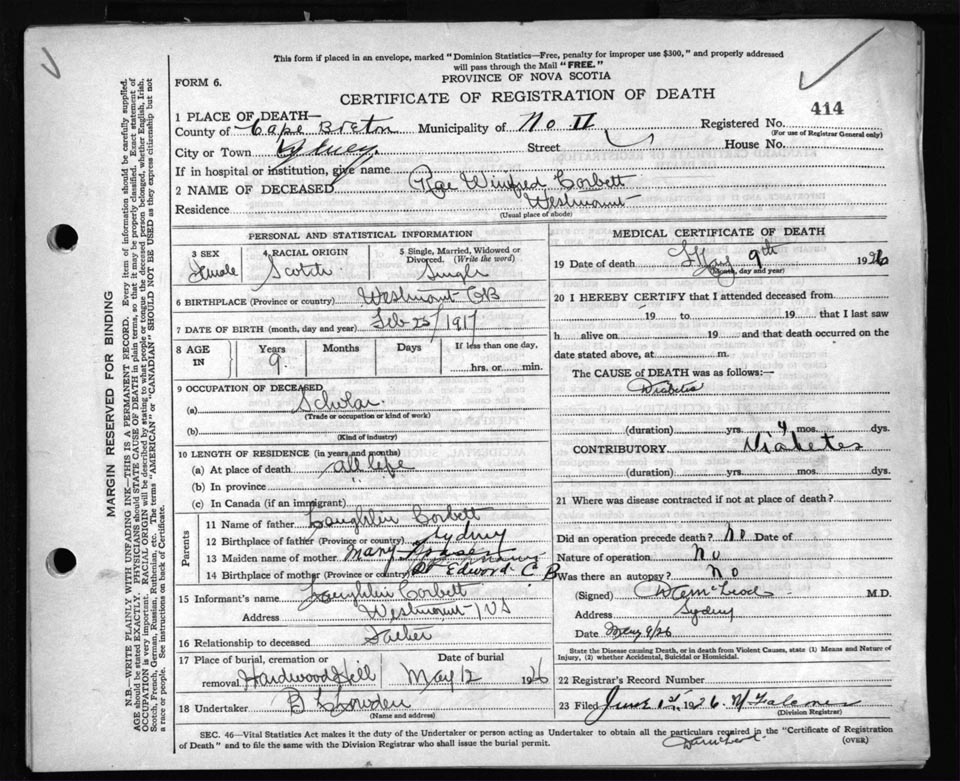 This form if placed in an envelope, marked "Dominion Statistics—Free, penalty for improper use $300," and properly addressed
will pass through the Mail "FREE."
FORM 6.
PROVINCE OF NOVA SCOTIA
CERTIFICATE OF REGISTRATION OF DEATH
414
1 PLACE OF DEATH—
County of Cape Breton Municipality of No 11 Registered No.
(For use of Registrar General only)
City or Town Sydney Street House No.
If in hospital or institution, give name
2 NAME OF DECEASED Winifred Corbett
Residence Westmount
(Usual place of abode)
PERSONAL AND STATISTICAL INFORMATION
3 SEX Female
4 RACIAL ORIGIN Scotch
5 Single, Married, Widowed or Divorced. (Write the word) Single
6 BIRTHPLACE (Province or country) Westmont CB
7 DATE OF BIRTH (month, day and year) Feb 25/1917
8 AGE IN Years 9 Months Days If less than one day, hrs. or min.
9 OCCUPATION OF DECEASED
(a) Scholar
(Trade or occupation or kind of work)
(b)
(Kind of industry)
10 LENGTH OF RESIDENCE (in years and months)
(a) At place of death all life
(b) In province
(c) In Canada (if an immigrant)
Parents
11 Name of father Laughlin Corbett
12 Birthplace of father (Province or country) Sydney
13 Maiden name of mother Mary
14 Birthplace of mother (Province or country) Edword C B
15 Informant's name Laughlin Corbett
Address Westmount NS
16 Relationship to deceased Father
17 Place of burial, cremation or removal Hardwood Hill Date of burial May 12 1926
18 Undertaker B
(Name and address)
MEDICAL CERTIFICATE OF DEATH
19 Date of death May 9th 1926
(Month, day and year)
20 I HEREBY CERTIFY that I attended deceased from
19 to 19 that I last saw
h alive on 19 and that death occurred on the
date stated above, at m.
The CAUSE of DEATH was as follows:—
Diabetis
(duration) yrs. 4 mos. dys.
CONTRIBUTORY Diabetes
(duration) yrs. mos. dys.
21 Where was disease contracted if not at place of death?
Did an operation precede death? No Date of
Nature of operation No
Was there an autopsy? No
(Signed) M.D.
Address Sydney
Date May 9/26
State the Disease causing Death, or in death from Violent Causes, state (1) Means and Nature of
Injury, (2) whether Accidental, Suicidal or Homicidal.
22 Registrar's Record Number
23 Filed June 1926
(Division Registrar)
SEC. 46—Vital Statistics Act makes it the duty of the Undertaker or person acting as Undertaker to obtain all the particulars required in the "Certificate of Registration
of Death" and to file the same with the Division Registrar who shall issue the burial permit.
(OVER)
MARGIN RESERVED FOR BINDING
N.B.—WRITE PLAINLY WITH UNFADING INK—THIS IS A PERMANENT RECORD. Every item of information should be carefully supplied.
AGE should be stated EXACTLY. PHYSICIANS should STATE CAUSE OF DEATH in plain terms, so that it may be properly classified. Exact statement of
OCCUPATION is very important. RACIAL ORIGIN will be described by stating to what people or tongue the deceased person belonged, whether English, Irish,
Scotch, French, German, Russian, Ruthenian, etc. The terms "AMERICAN" or "CANADIAN" SHOULD NOT BE USED as they express citizenship but not
a race or people. See instructions on back of Certificate.